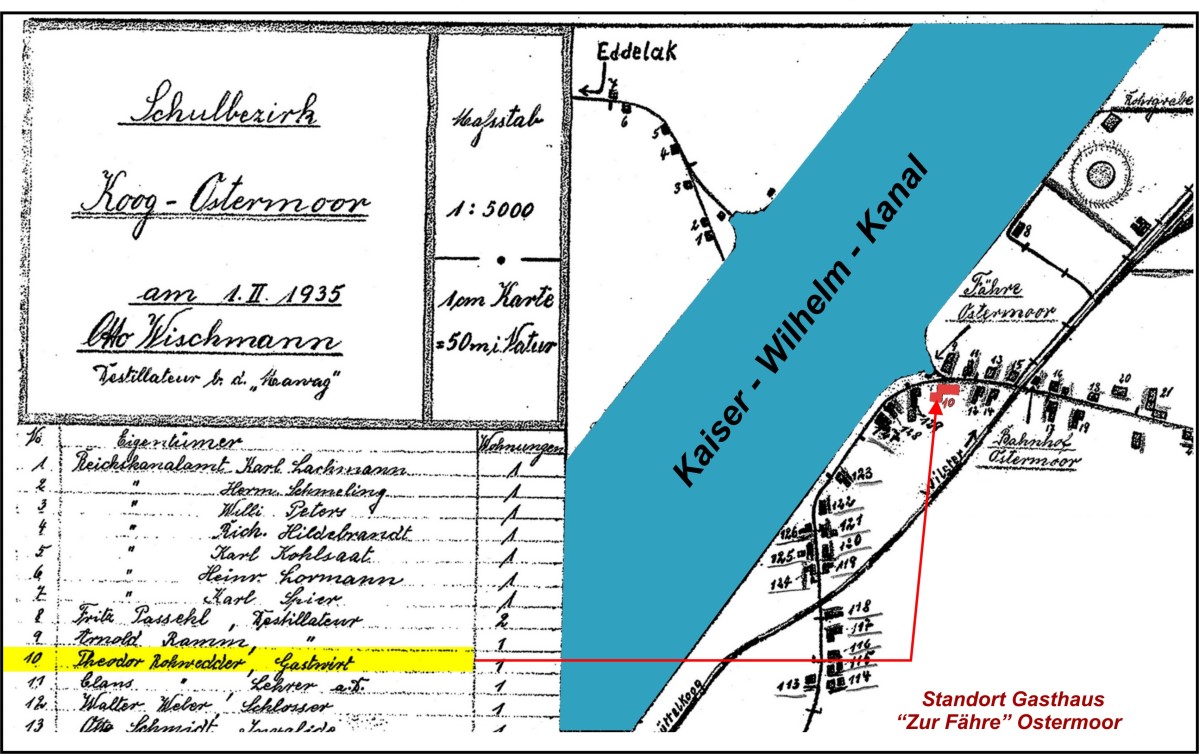 Schulbezirk
Koog - Ostermoor
am 1. II. 1935
Otto Wischmann
Destillateur b. d. „Hawag"
Maßstab
1 : 5000
1 cm Karte
= 50 m i. Natur
No. Eigentümer Wohnungen
1 Reichskanalamt Karl Lachmann 1
2 " Herm. Schmeling 1
3 " Willi Peters 1
4 " Rich. Hildebrandt 1
5 " Karl Kohlsaat 1
6 " Heinr. Lormann 1
7 " Karl Spier 1
8 Fritz Passehl, Destillateur 2
9 Arnold Ramm, " 1
10 Theodor Rohwedder, Gastwirt 1
11 Claus " , Lehrer a.D. 1
12 Walter Weber, Schlosser 1
13 Otto Schmidt, Invalide 1
Eddelak
7
6
5
4
3
2
1
Kaiser - Wilhelm - Kanal
8
Fähre
Ostermoor
9
11
13
15
16
18
20
21
10
12
14
17
19
Bahnhof
Ostermoor
Wilster
127
128
129
123
122
126
121
125
120
124
119
118
117
116
115
113
114
Standort Gasthaus
"Zur Fähre" Ostermoor